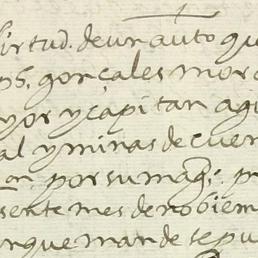 virtud. de un auto qu
ps, gonçales moro
yor y capitan agu
al y minas de cuen
on por su mag; pr
sente mes de nobiem
rque man de sepu